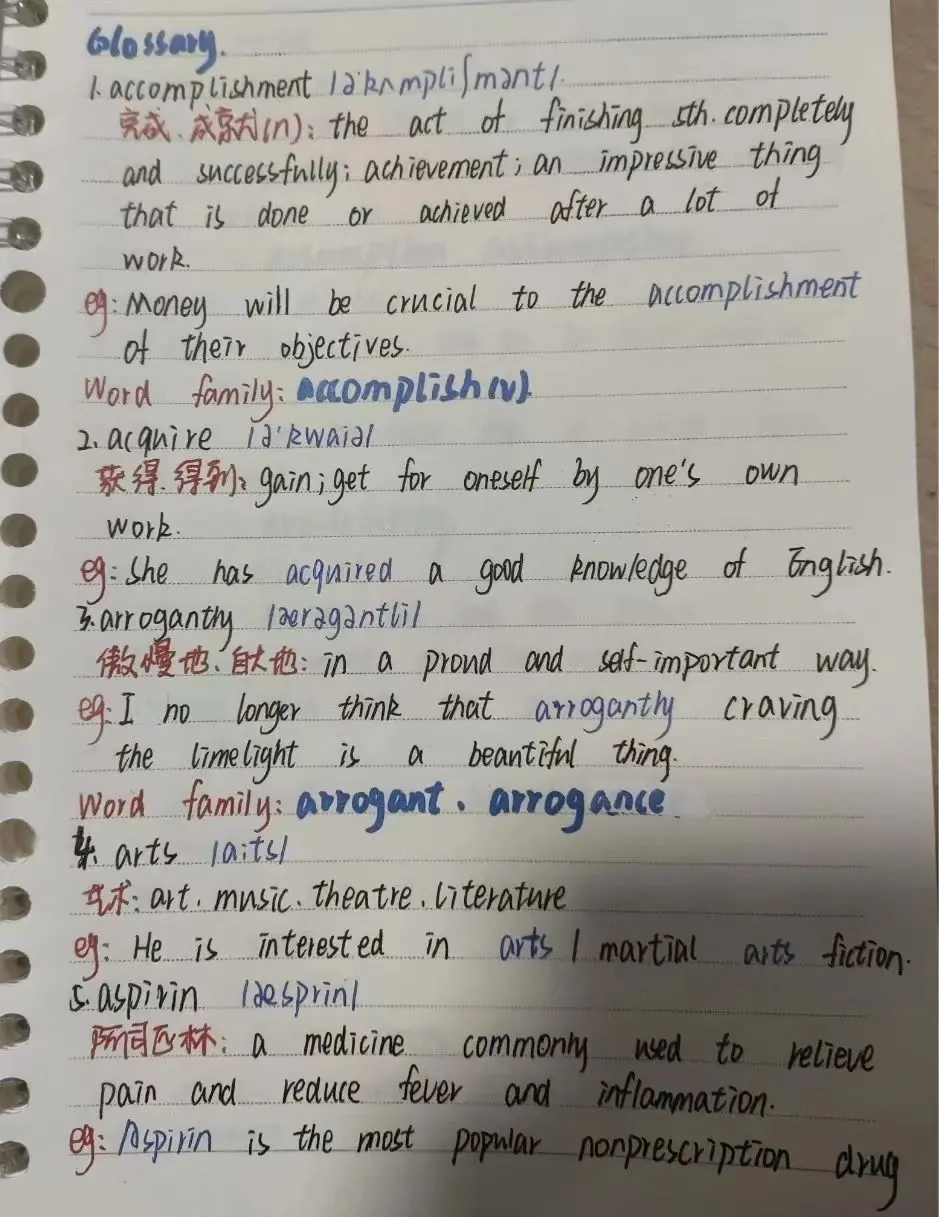 Glossary.
1. accomplishment /əˈkʌmpliʃmənt/.
完成、成就(n): the act of finishing sth. completely
and successfully; achievement; an impressive thing
that is done or achieved after a lot of
work.
eg: Money will be crucial to the accomplishment
of their objectives.
Word family: accomplish(v).
2. acquire /əˈkwaiə/
获得、得到: gain; get for oneself by one's own
work.
eg: She has acquired a good knowledge of English.
3. arrogantly /ærəgəntli/
傲慢地、自大地: in a proud and self-important way.
eg: I no longer think that arrogantly craving
the limelight is a beautiful thing.
Word family: arrogant. arrogance
4. arts /a:ts/
艺术: art. music. theatre. literature
eg: He is interested in arts / martial arts fiction.
5. aspirin /æsprin/
阿司匹林: a medicine commonly used to relieve
pain and reduce fever and inflammation.
eg: Aspirin is the most popular nonprescription drug